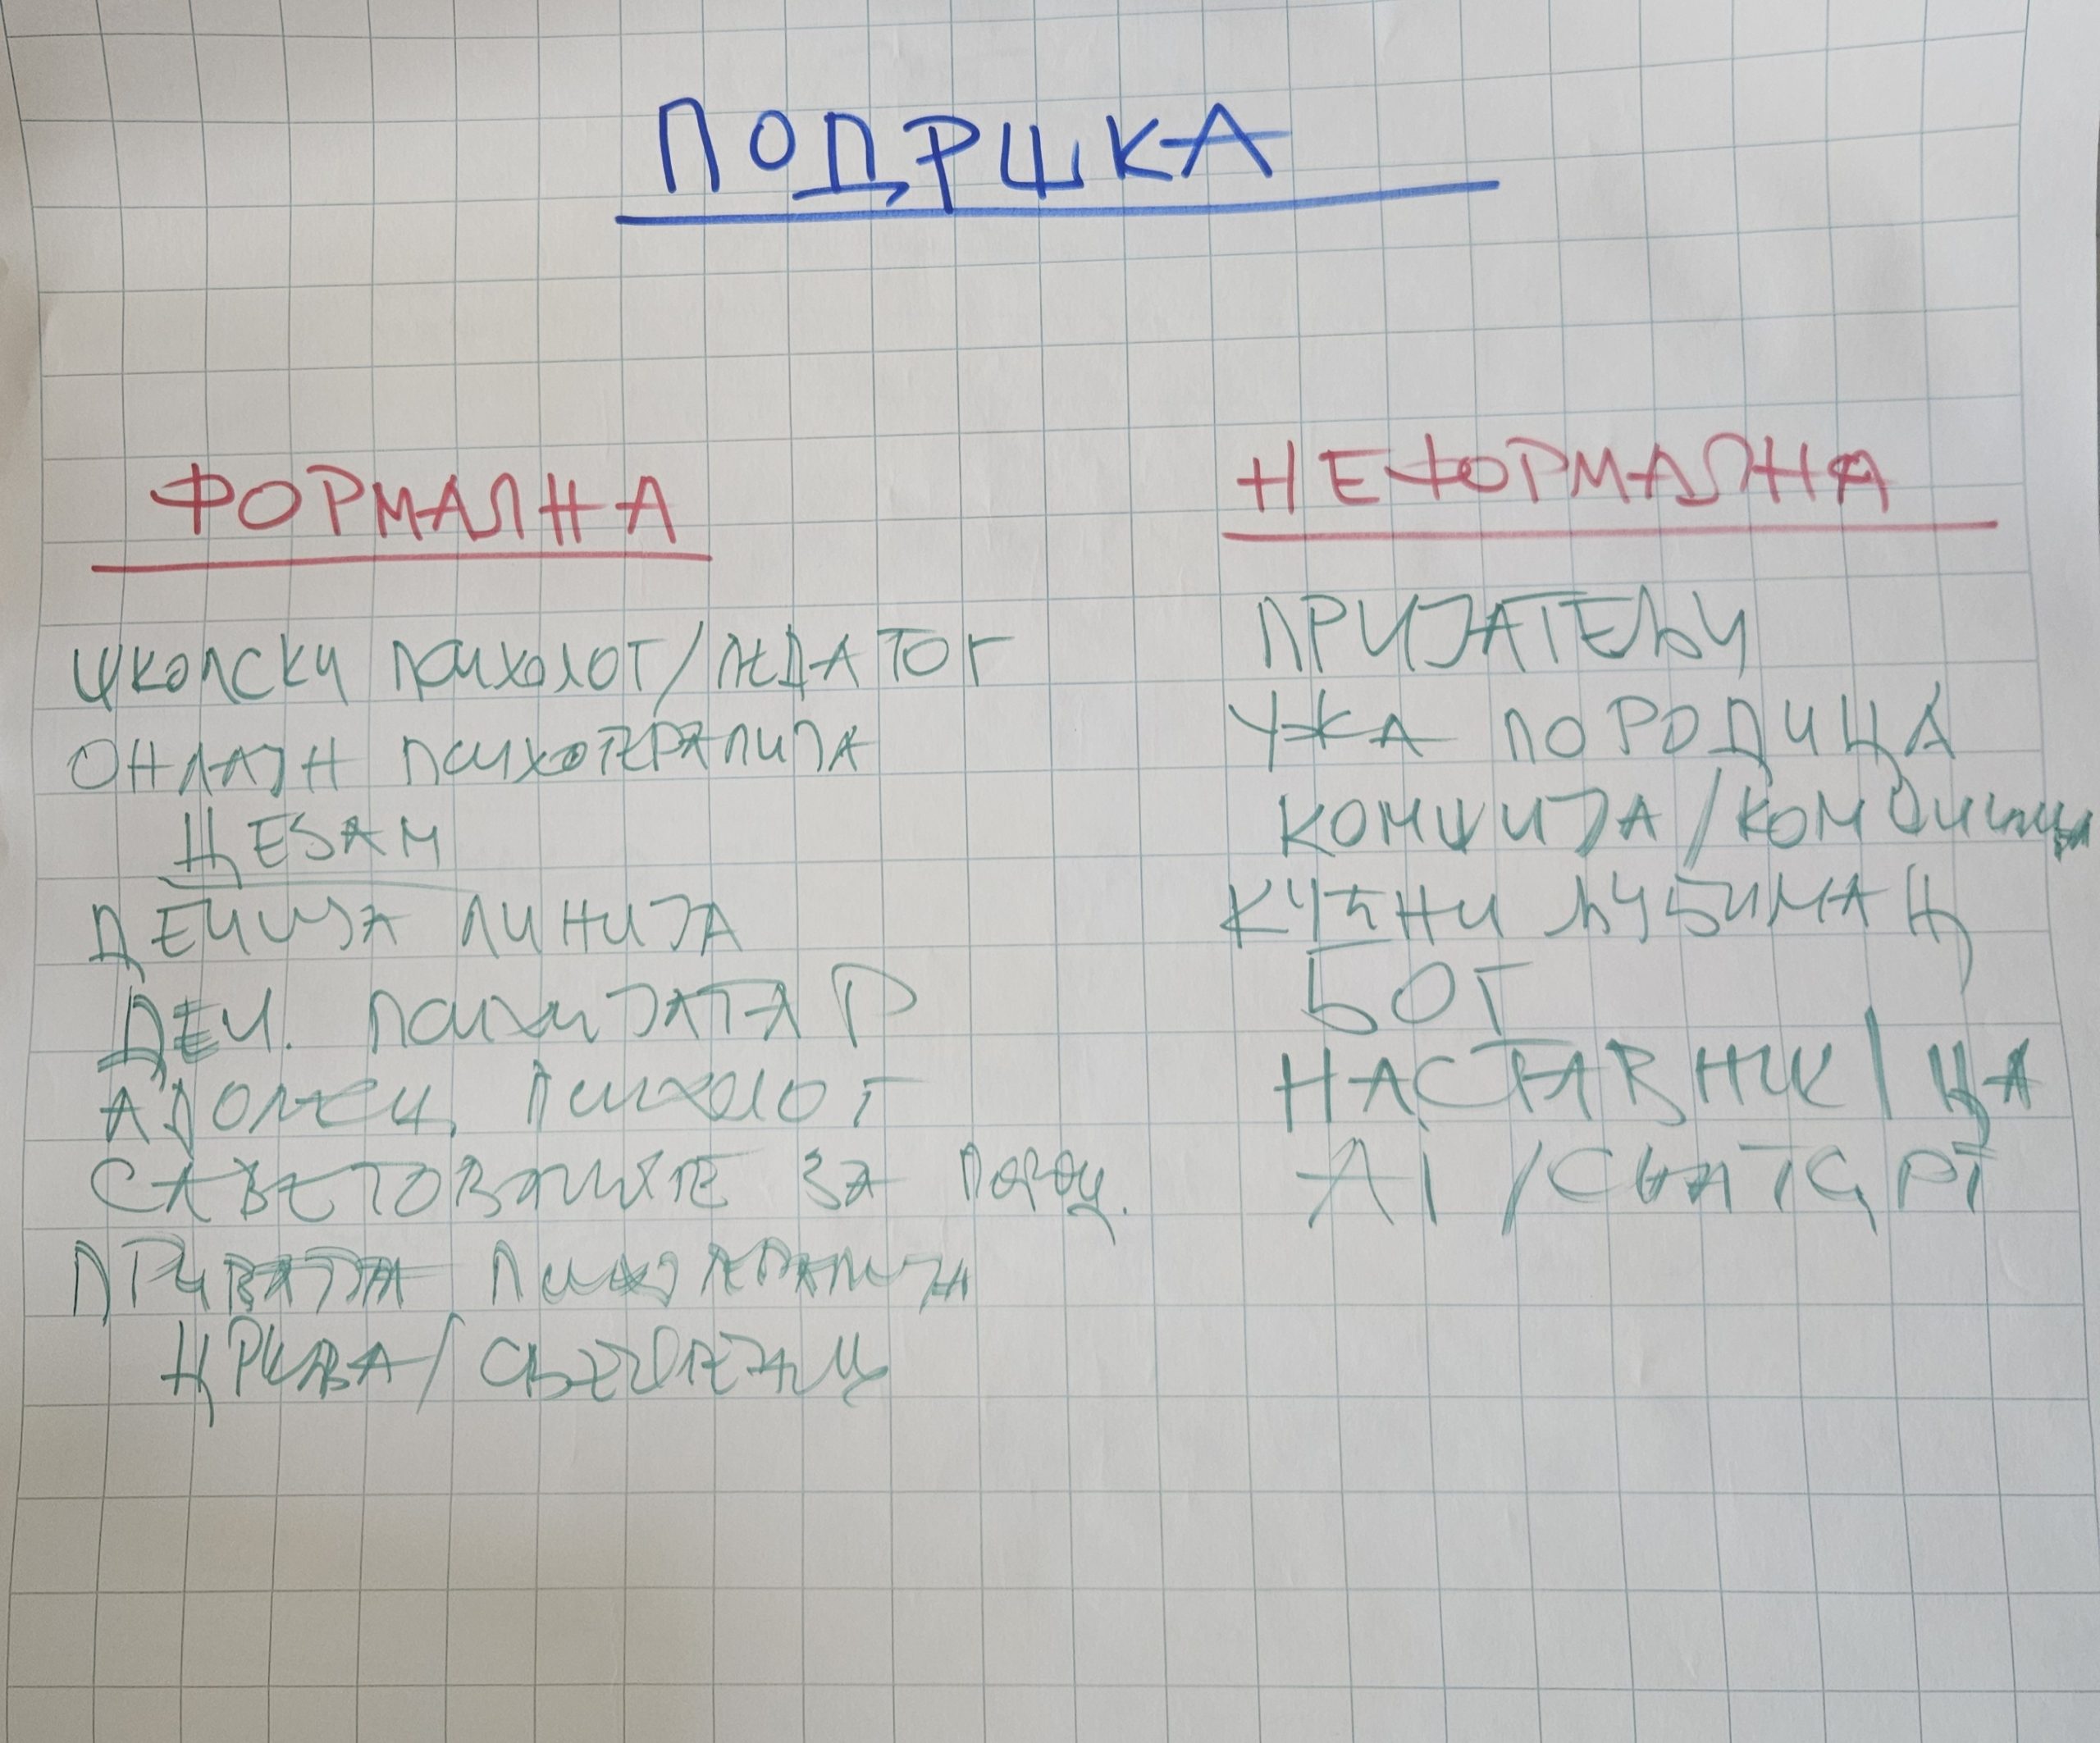 ПОДРШКА
ФОРМАЛНА
ШКОЛСКИ ПСИХОЛОГ/ПЕДАГОГ
ОНЛАЈН ПСИХОТЕРАПИЈА
ЦЕЗАМ
ДЕЧИЈА ЛИНИЈА
ДЕЧ. ПСИХИЈАТАР
АДОЛЕСЦ. ПСИХОЛОГ
САВЕТОВАЛИШТЕ ЗА ПОРОД.
ПРИВАТНА ПСИХОТЕРАПИЈА
ЦРКВА/
НЕФОРМАЛНА
ПРИЈАТЕЉИ
УЖА ПОРОДИЦА
КОМШИЈА/КОМШИНИЦА
КУЋНИ ЉУБИМАЦ
БОГ
НАСТАВНИК/ЦА
AI/CHATGPT